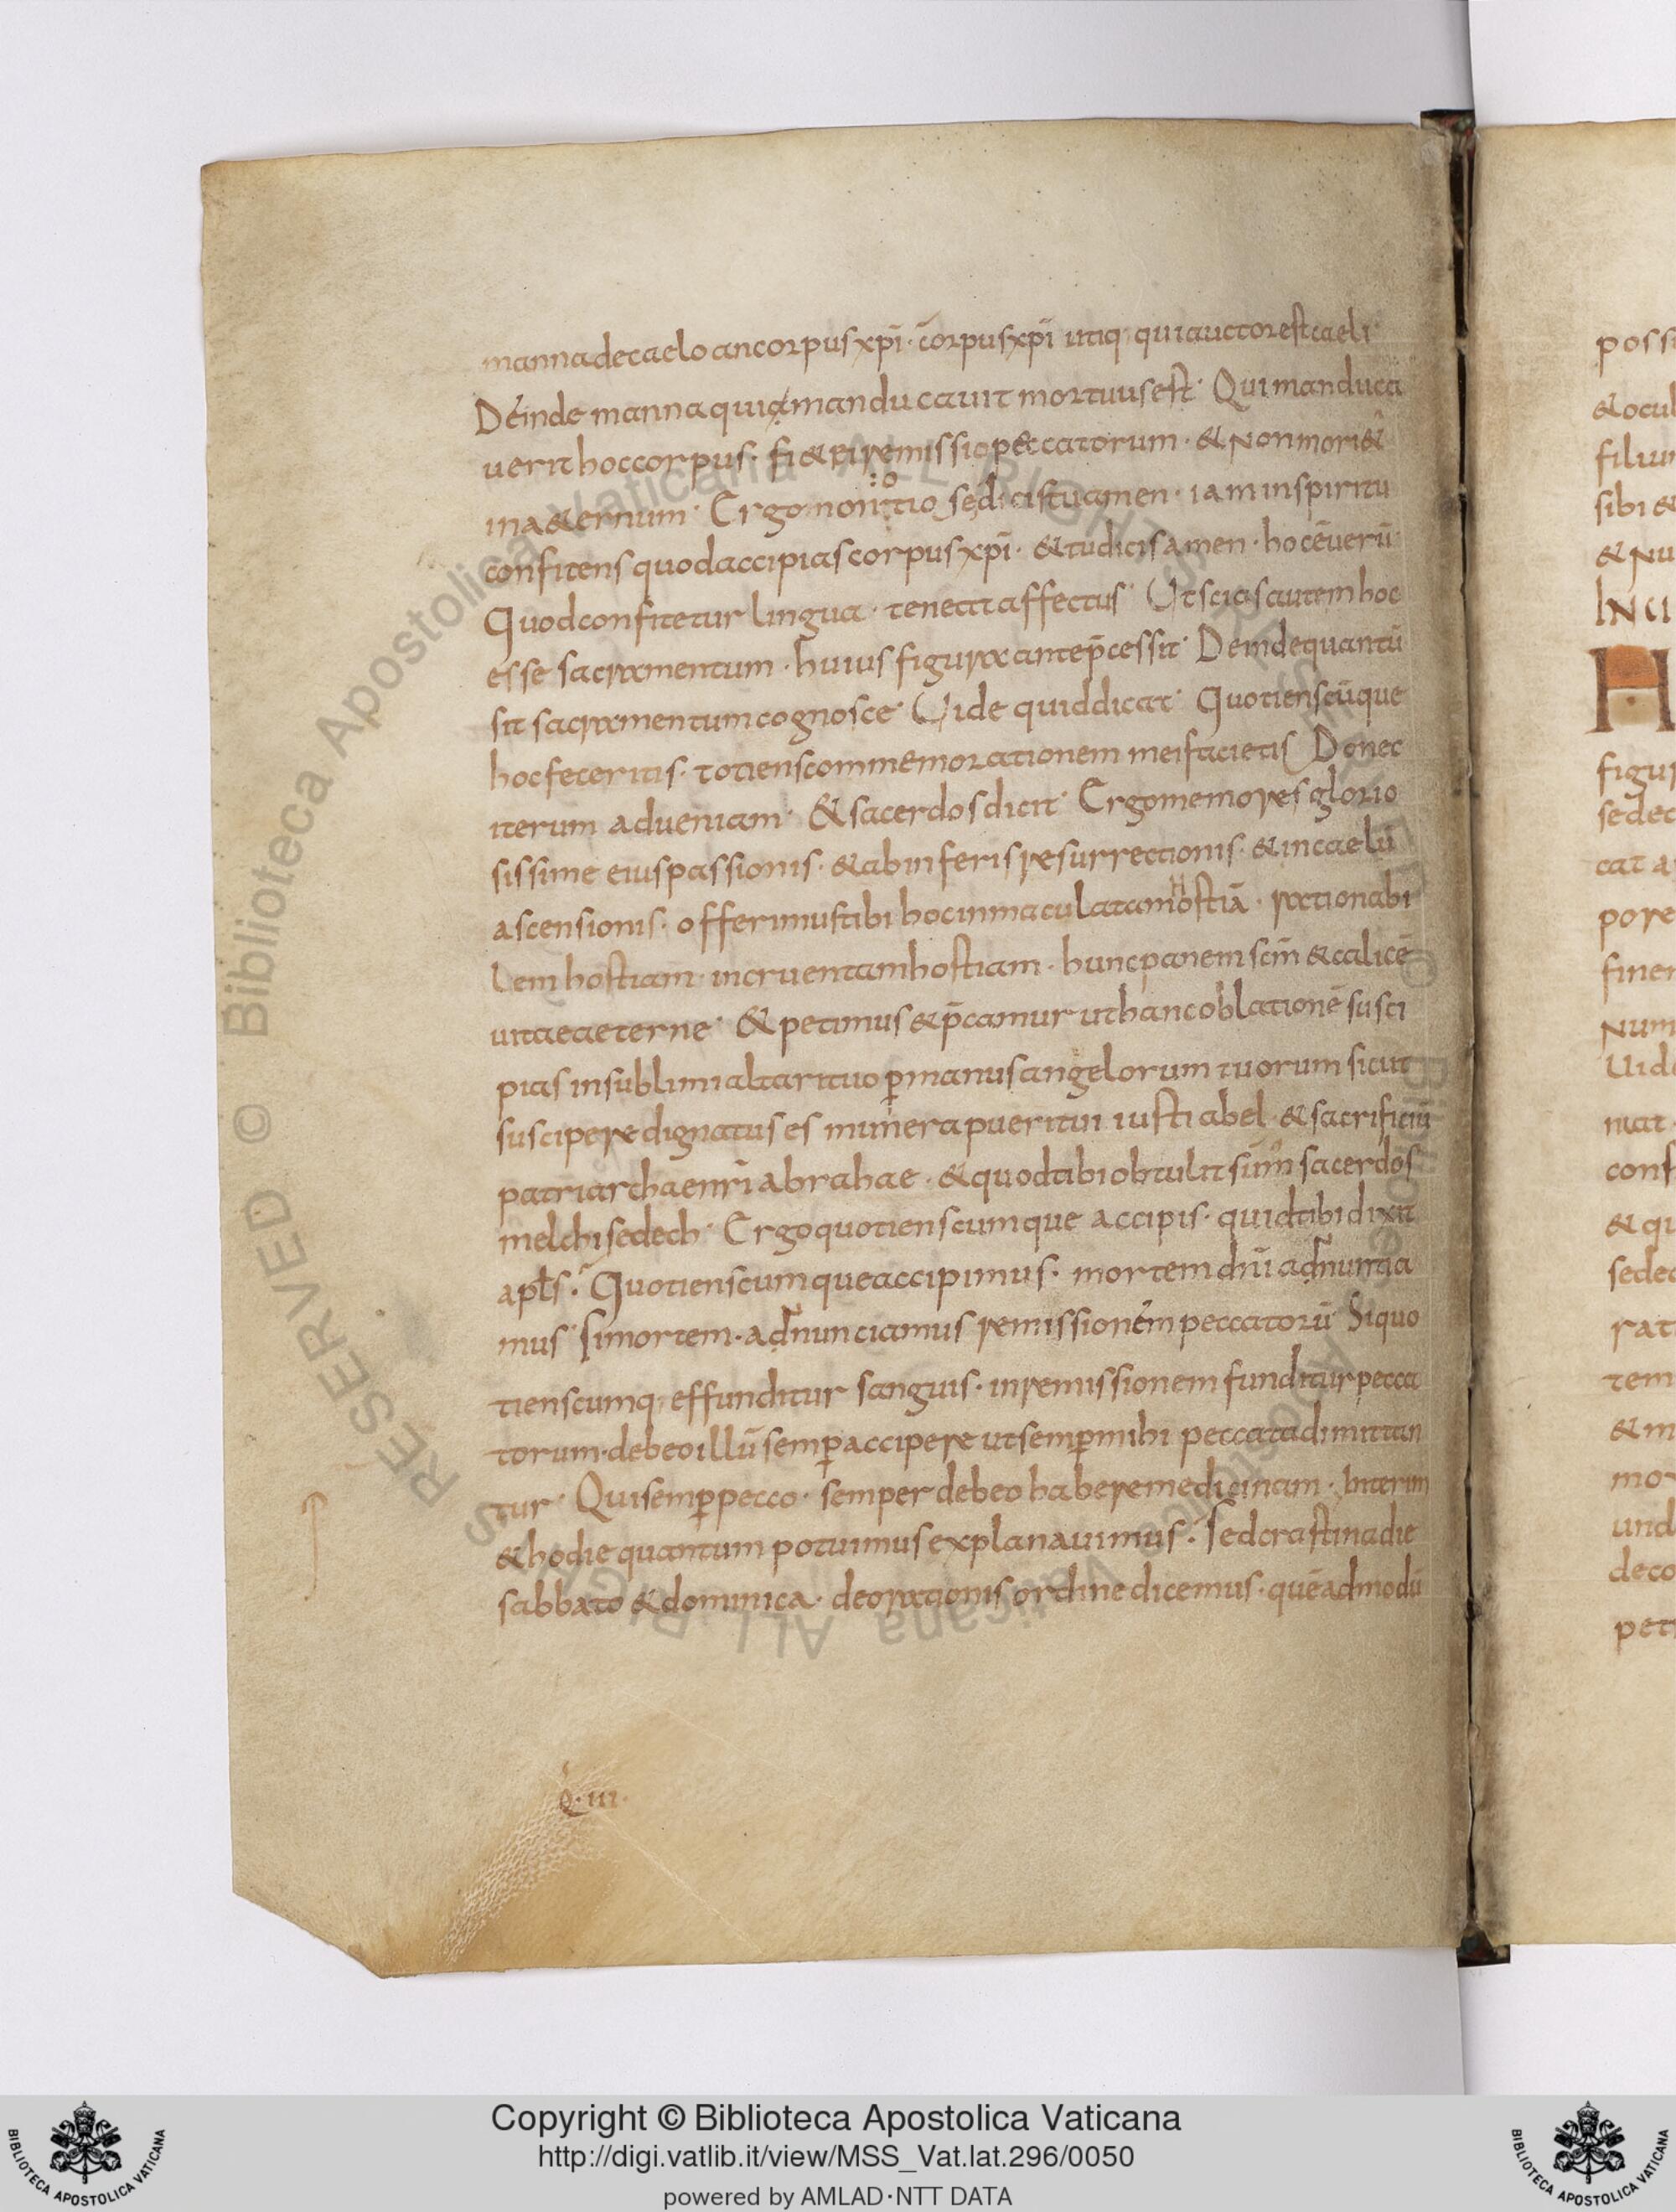 manna de caelo an corpus xp̄i · corpus xp̄i utiq; qui auctor est caeli
Deinde manna qui manducauit mortuus est · Qui manduca
uerit hoc corpus · fi& ei remissio peccatorum · & non mori&
in a&ernum · Ergo non otio se dicis tu amen · iam in spiritu
confitens quod accipias corpus xp̄i · & tu dicis amen · hoc ē uerū
Quod confitetur lingua · teneat affectus · Ut scias autem hoc
esse sacramentum · huius figura ante p̄cessit · Deinde quantū
sit sacramentum cognosce · Uide quid dicat · Quotienscūque
hoc feceritis · totiens commemorationem mei facietis Donec
iterum adueniam · & sacerdos dicit · Ergo memores glorio
sissime eius passionis · & ab inferis resurrectionis · & in caelū
ascensionis · offerimus tibi hoc inmaculatam hostiā · rationabi
lem hostiam · incruentam hostiam · hunc panem scm̄ & calicē
uitae aeterne · & petimus & p̄camur ut hanc oblationē susci
pias in sublimi altari tuo p̱ manus angelorum tuorum sicut
suscipere dignatus es munera pueri tui iusti abel · & sacrificiū
patriarchae nr̄i abrahae · & quod tibi obtulit sum̄ sacerdos
melchisedech · Ergo quotienscumque accipis · quid tibi dixit
apl̄s · Quotienscumque accipimus · mortem dn̄i adnuntia
mus si mortem · adnunciamus remissionem peccatorū Si quo
tienscumq; effunditur sanguis · in remissionem funditur pecca
torum · debeo illū semp̱ accipere ut semp̱ mihi peccata dimittan
tur · Qui semp̱ pecco · semper debeo habere medicinam · Interim
& hodie quantum potuimus explanauimus · sed crastina die
sabbato & dominica · de orationis ordine dicemus · quēadmodū
Q · III ·
possi
& ocul
filiu
sibi &
& nu
INCI
A
figur
sedec
cat a
pore
finer
num
Uide
niat
conf
& qu
sedec
rat
tem
& m
mor
und
deco
pet
© Biblioteca Apostolica Vaticana ALL RIGHTS RESERVED
Copyright © Biblioteca Apostolica Vaticana
http://digi.vatlib.it/view/MSS_Vat.lat.296/0050
powered by AMLAD·NTT DATA
BIBLIOTECA APOSTOLICA VATICANA
BIBLIOTECA APOSTOLICA VATICANA